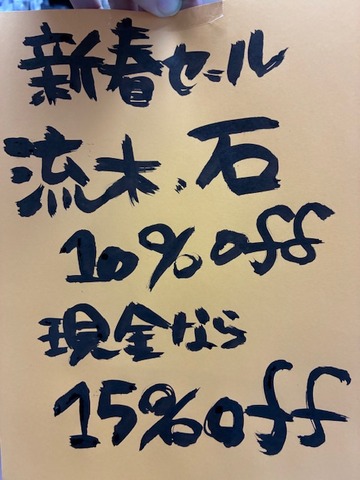 新春セール
流木、石
10%off
現金なら
15%off